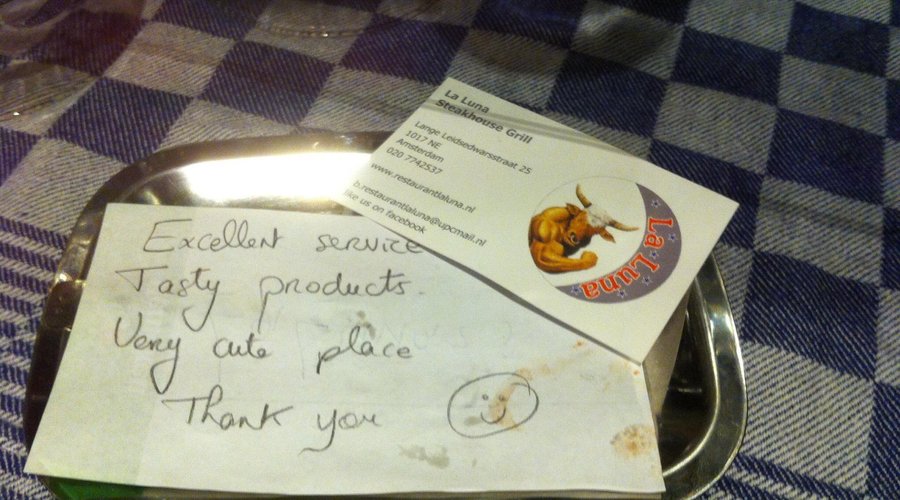 La Luna
Steakhouse Grill
Lange Leidsedwarsstraat 25
1017 NE
Amsterdam
020 7742537
www.restaurantlaluna.nl
b.restaurantlaluna@upcmail.nl
like us on facebook
La Luna
Excellent service
Tasty products.
Very cute place
Thank you